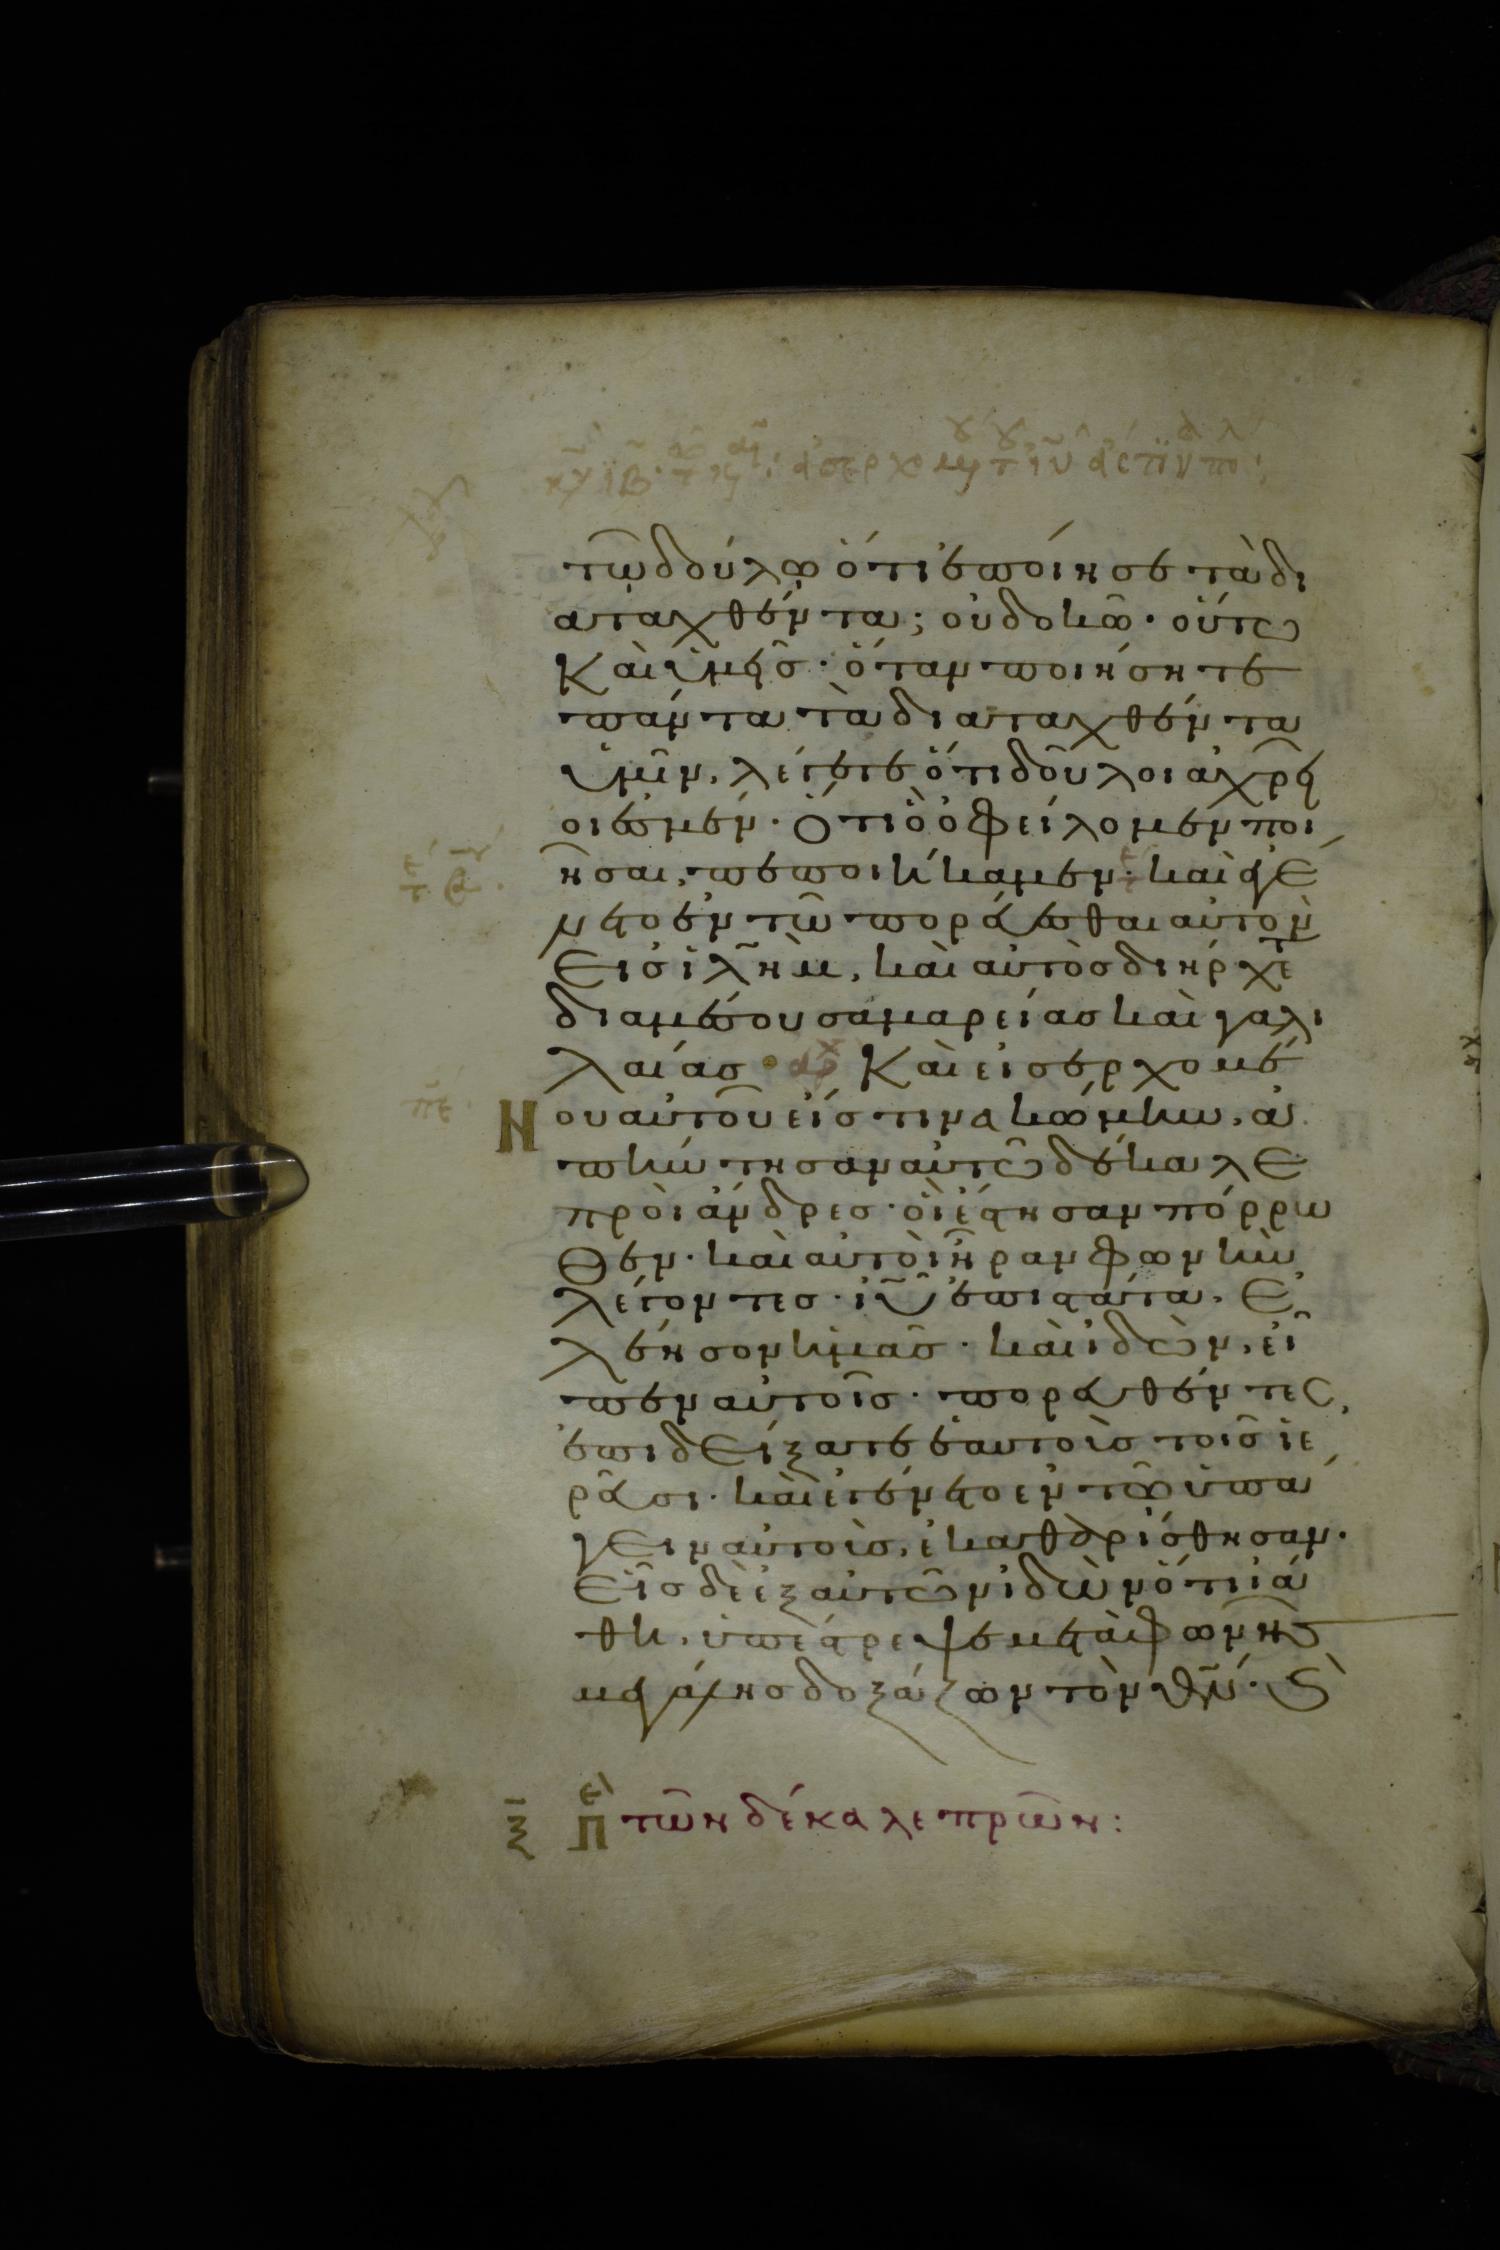 τῶ δούλω ὅτι ἐποίησε τὰ δι
αταχθέντα; οὐ δοκῶ· οὕτω
Καὶ ὑμεῖς· ὅταν ποιήσητε
πάντα τὰ διαταχθέντα
ὑμῖν, λέγετε ὅτι δοῦλοι ἀχρεῖ
οι ἐσμέν· Ὅτι ὃ ὀφείλομεν ποι
ῆσαι, πεποιήκαμεν· καὶ ἐγέ
νετο ἐν τῶ πορεύεσθαι αὐτὸν
Εἰς ἰλ̅η̅μ, καὶ αὐτὸς διήρχετ
διαμέσου σαμαρείας καὶ γαλι
λαίας· ἀρχ Καὶ εἰσερχομέ
Νου αὐτοῦ εἴς τινα κώμην, ἀ
πήντησαν αὐτῶ δέκα λε
προὶ ἄνδρες· οἳ ἔστησαν πόρρω
Θεν· καὶ αὐτοὶ ἦραν φωνὴν
λέγοντες· ἰ̅υ̅ ἐπιστάτα, Ἐ
λέησον ἡμᾶς· καὶ ἰδὼν, εἶ
πεν αὐτοῖς· πορευθέντες,
ἐπιδείξατε ἑαυτοὺς τοῖς ἱε
ρεῦσι· καὶ ἐγένετο ἐν τῶ ὑπά
γειν αὐτοὺς, ἐκαθερίσθησαν·
Εἷς δὲ ἐξ αὐτῶν ἰδὼν ὅτι ἰά
θη, ὑπέστρεψε μεταὶ φωνῆς
μεγάλης δοξάζων τὸν θ̅ν̅· Καὶ
ξ̅ Περὶ τῶν δέκα λεπρῶν: